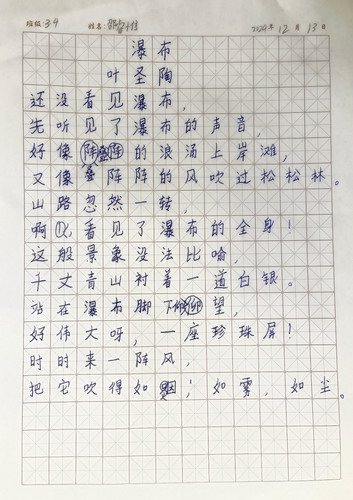 班级:3.4 姓名: 2024年12月13日
瀑布
叶圣陶
还没看见瀑布,
先听见了瀑布的声音,
好像阵叠阵的浪涌上岸滩,
又像阵阵的风吹过松松林。
山路忽然一转,
啊,看见了瀑布的全身!
这般景象没法比喻,
千丈青山衬着一道白银。
站在瀑布脚下仰望,
好伟大呀,一座珍珠屏!
时时来一阵风,
把它吹得如烟,如雾,如尘。